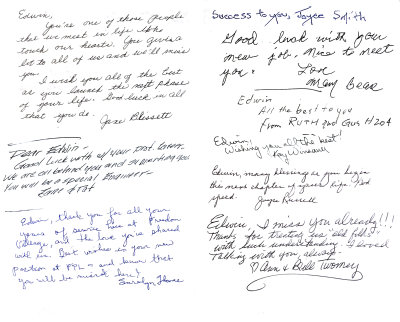 Edwin,
You're one of those people
that we meet in life who
touch our hearts. You gave a
lot to all of us and we'll miss
you.
I wish you all of the best
as you launch the next phase
of your life. Good luck in all
that you do.
Jane
Dear Edwin -
Good Luck with
We are all behind you and supporting you
You will be a special Engineer -
Love
Edwin, thank you for all your
years of service here at Freedom
Village, and the love you've shared
with us. Best wishes in your new
position at PPL - and know that
you will be missed here!
Success to you, Joyce Smith
Good luck with your
new job. Nice to meet
you.
Love
Mary Bear
Edwin
All the best to you
from RUTH and Gus H204
Edwin,
Wishing you all the best!
Kay
Edwin, many blessings as you begin
the next chapter of your life. God
speed.
Joyce Russell
Edwin, I miss you already!!!
Thanks for treating us "old folks"
with such understanding. I loved
talking with you, always.
Ann & Bill Twomey